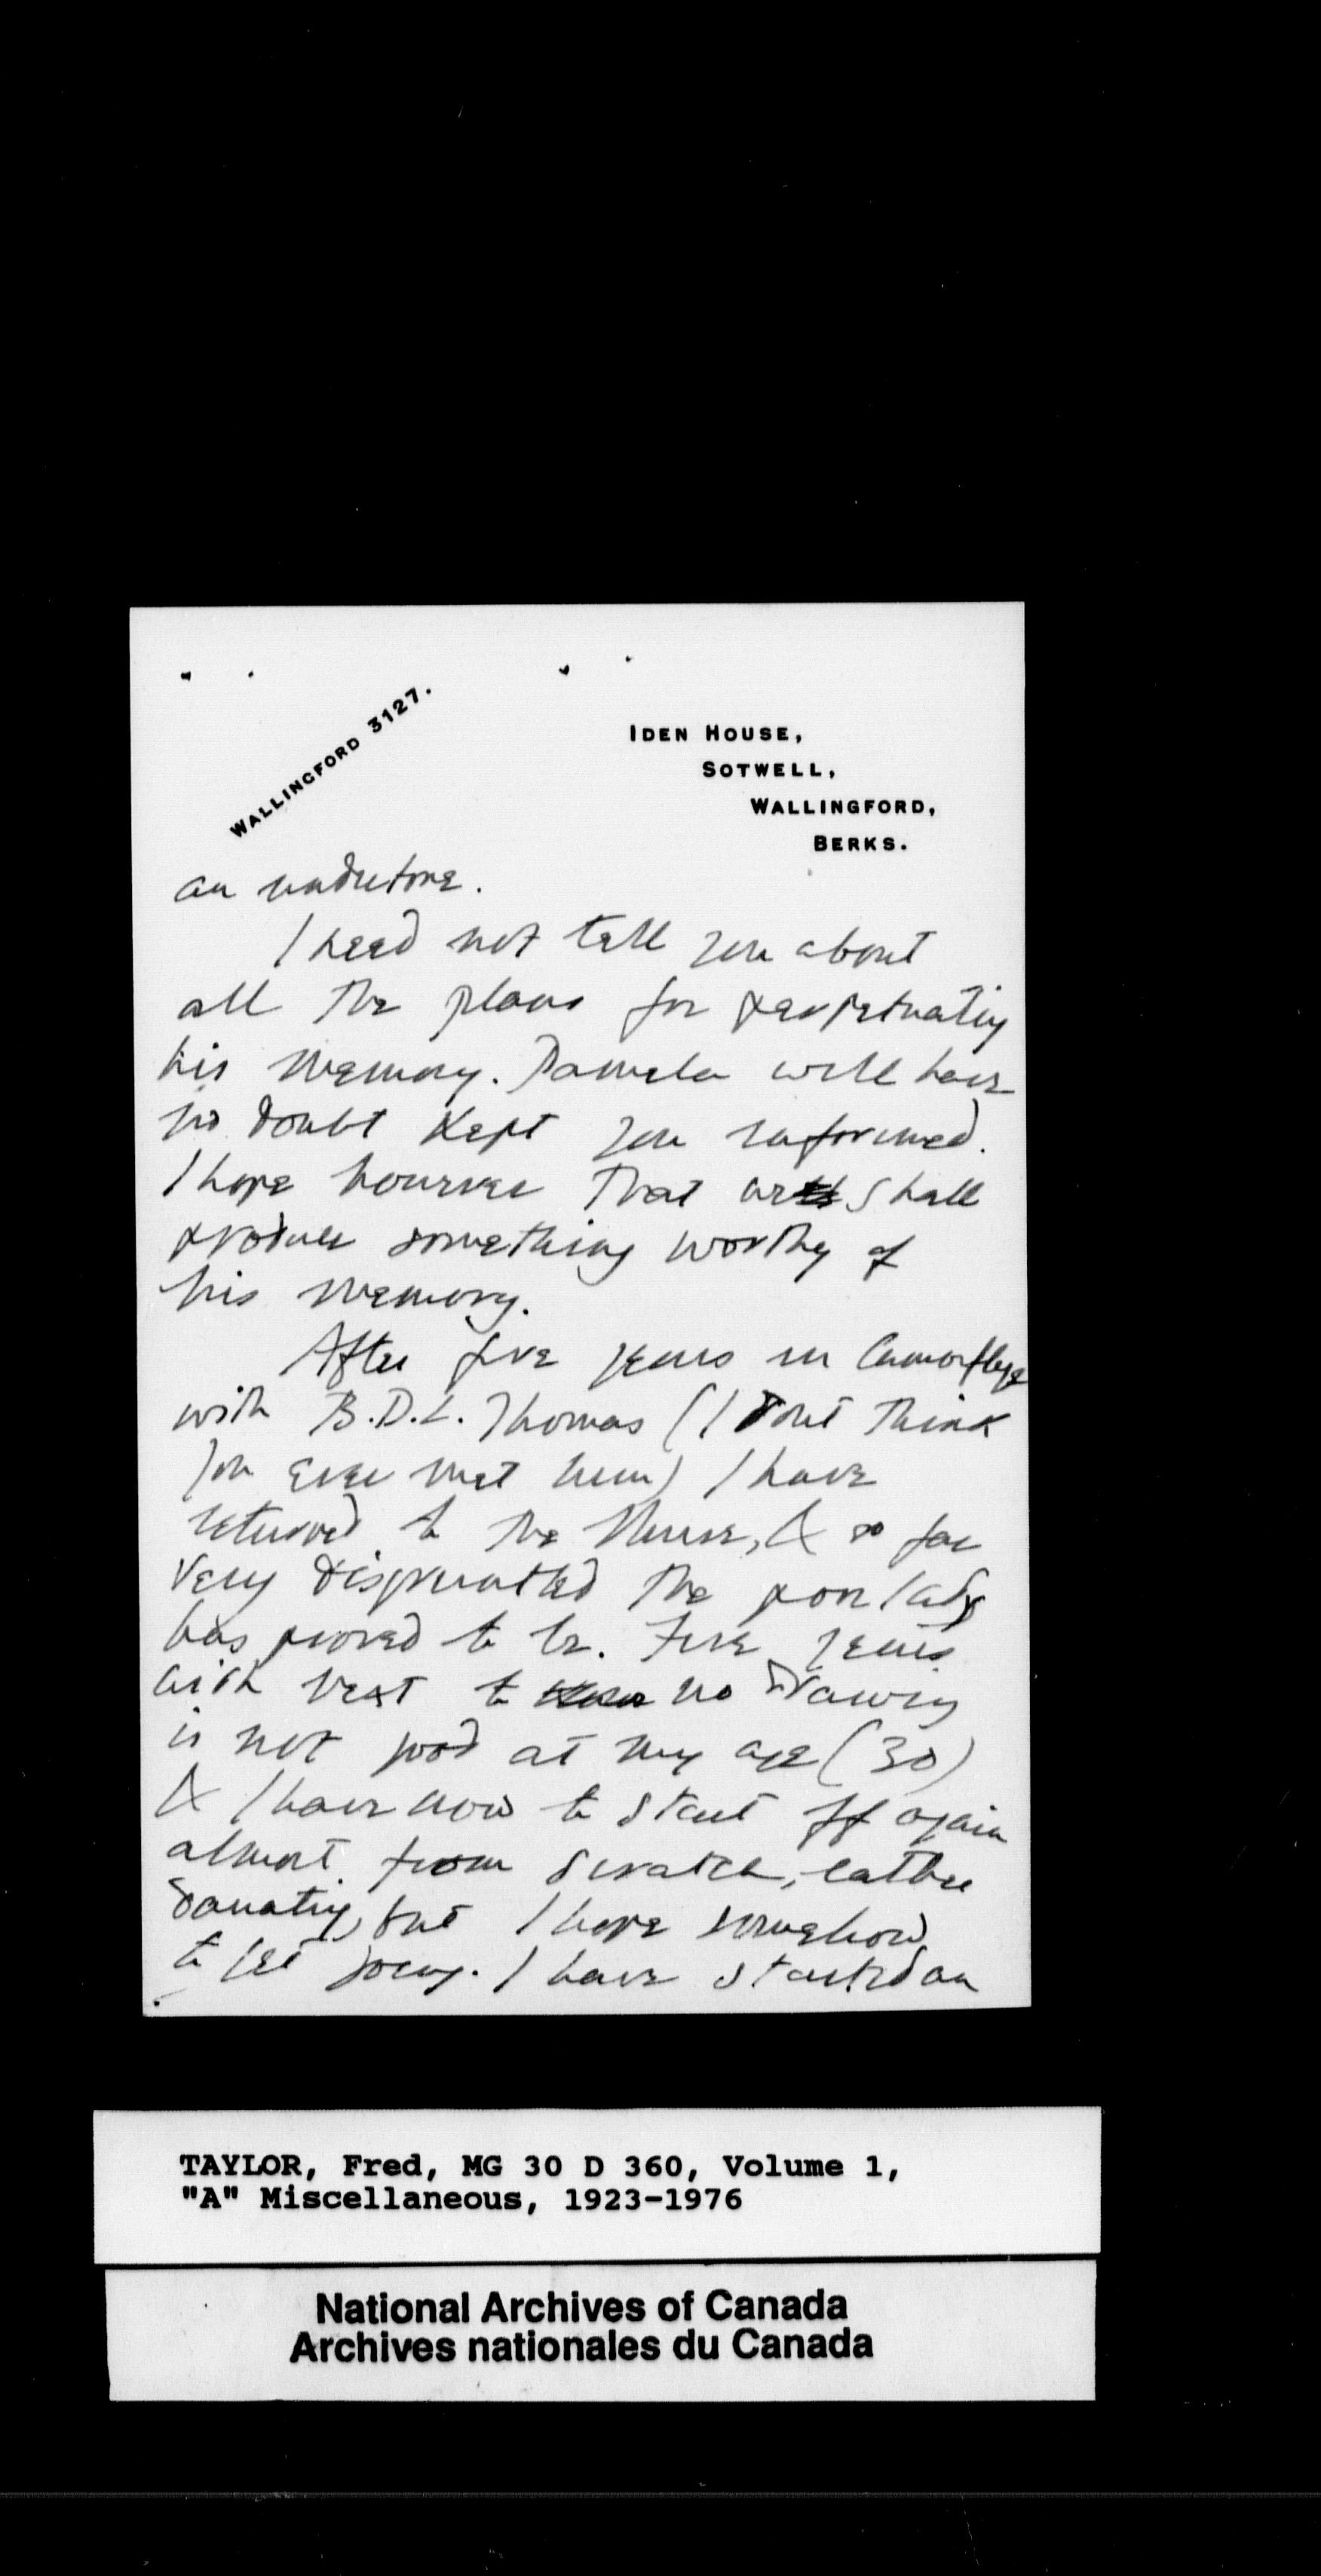 WALLINGFORD 3127.
IDEN HOUSE,
SOTWELL,
WALLINGFORD,
BERKS.
an undertone.
I need not tell you about
all the plans for perpetuating
his memory. Pamela will have
no doubt kept you informed.
I hope however that we shall
produce something worthy of
his memory.
After five years in Camouflage
with B.D.L. Thomas (I dont think
you ever met him) I have
returned to the Muse, & so far
very disgruntled the poor lady
has proved to be. Five years
with next to no drawing
is not good at my age (30)
& I have now to start off again
almost from scratch, rather
daunting, but I hope somehow
to get going. I have started on
TAYLOR, Fred, MG 30 D 360, Volume 1,
"A" Miscellaneous, 1923-1976
National Archives of Canada
Archives nationales du Canada